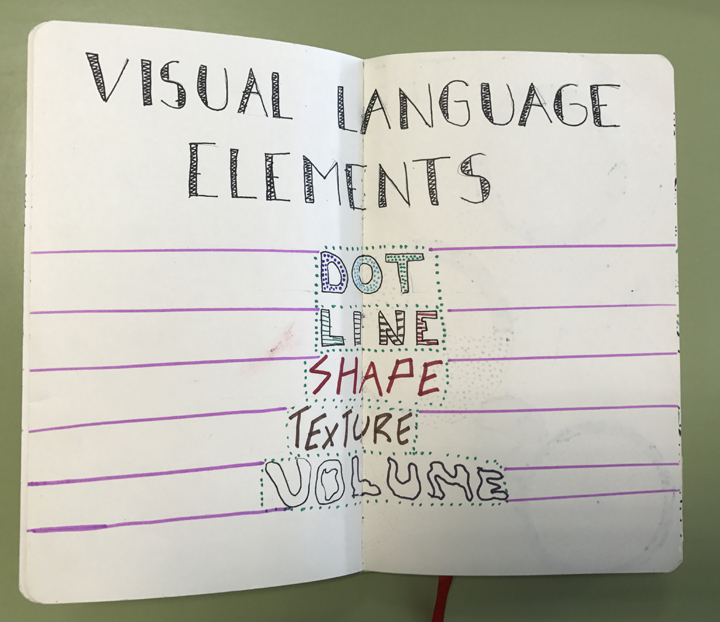 VISUAL LANGUAGE
ELEMENTS
DOT
LINE
SHAPE
TEXTURE
VOLUME